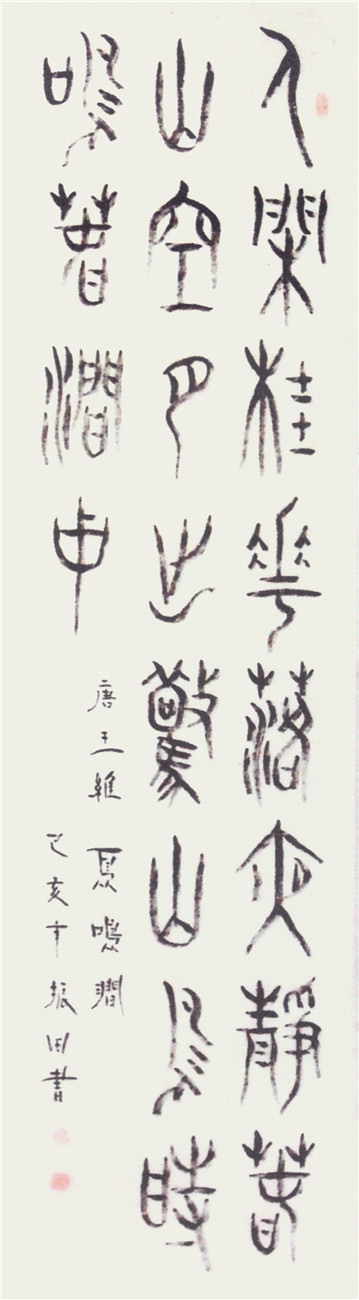 人閑桂花落夜靜春
山空月出驚山鳥時
鳴春澗中
唐王維 鳥鳴澗
己亥年振田書